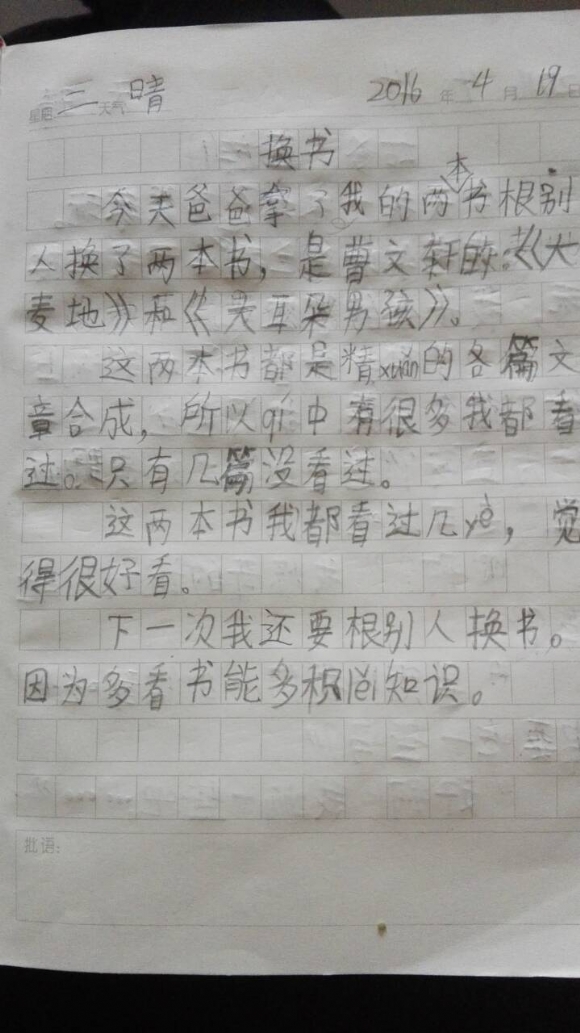 星期二 天气晴 2016年4月19日
换书
今天爸爸拿了我的两本书根别
人换了两本书，是曹文轩的：《大
麦地》和《天耳朵男孩》。
这两本书都是精xuǎn的各篇文
章合成，所以qí中有很多我都看
过。只有几篇没看过。
这两本书我都看过几yè，觉
得很好看。
下一次我还要根别人换书。
因为多看书能多积lěi知识。
批语：